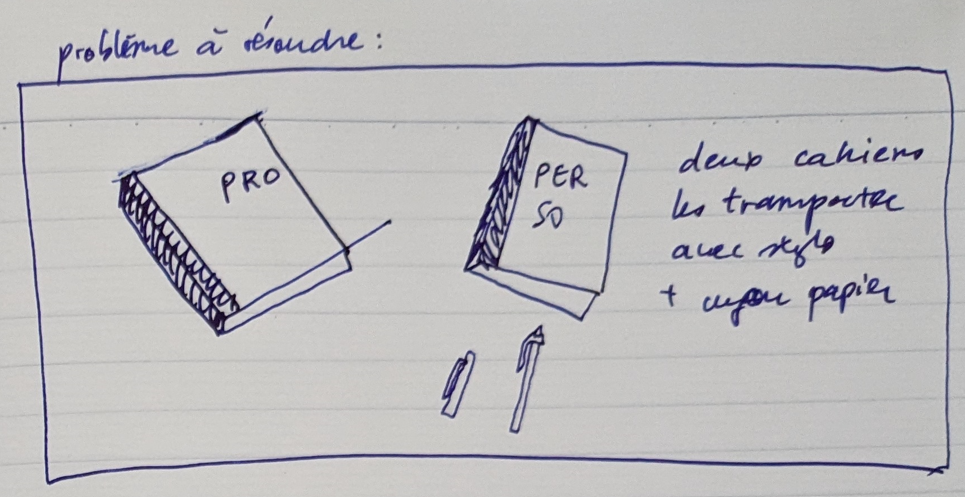 problème à résoudre :
PRO
PER
SO
deux cahiers
les transporter
avec stylo
+ crayon papier